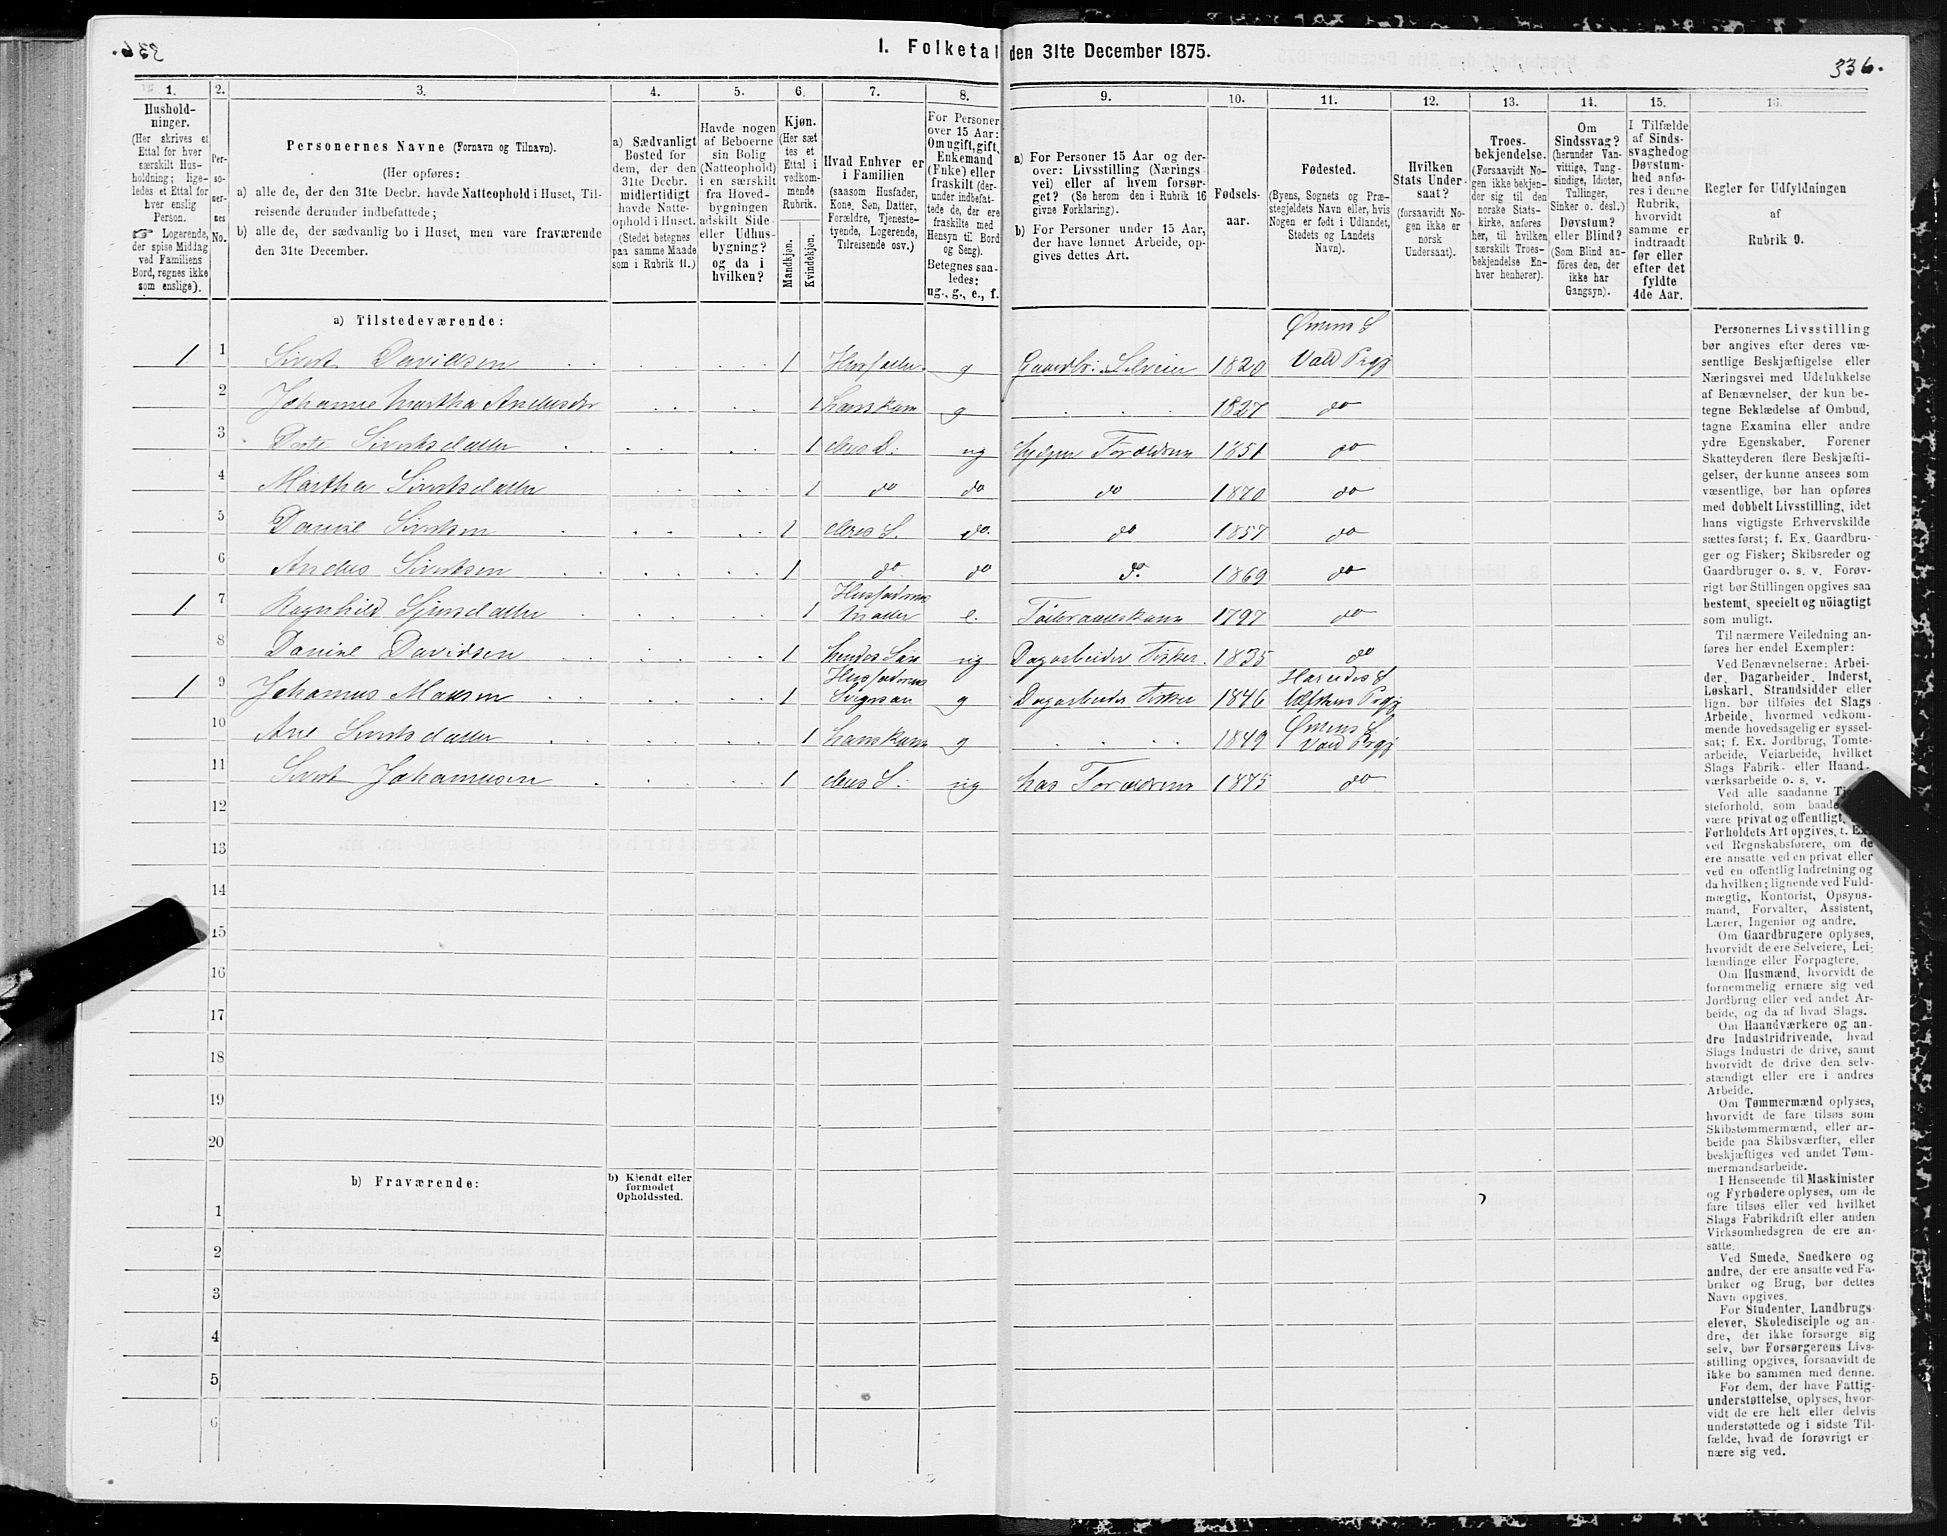 336.
I. Folketal den 31te December 1875.
336.
1.
Hushold-
ninger.
(Her skrives et
Ettal for hver
særskilt Hus-
holdning; lige-
ledes et Ettal for
hver enslig
Person.
☞ Logerende,
der spise Middag
ved Familiens
Bord, regnes ikke
som enslige).
2.
Per-
so-
ner-
nes
No.
3.
Personernes Navne (Fornavn og Tilnavn).
(Her opføres:
a) alle de, der den 31te Decbr. havde Natteophold i Huset, Til-
reisende derunder indbefattede;
b) alle de, der sædvanlig bo i Huset, men vare fraværende
den 31te December.
4.
a) Sædvanligt
Bosted for
dem, der den
31te Decbr.
midlertidigt
havde Natte-
ophold i Huset.
(Stedet betegnes
paa samme Maade
som i Rubrik 11.)
5.
Havde nogen
af Beboerne
sin Bolig
(Natteophold)
i en særskilt
fra Hoved-
bygningen
adskilt Side-
eller Udhus-
bygning?
og da i
hvilken?
6.
Kjøn.
(Her sæt-
tes et
Ettal i
vedkom-
mende
Rubrik.
Mandkjøn.
Kvindekjøn.
7.
Hvad Enhver er
i Familien
(saasom Husfader,
Kone, Søn, Datter,
Forældre, Tjeneste-
tyende, Logerende,
Tilreisende osv.)
8.
For Personer
over 15 Aar:
Om ugift, gift,
Enkemand
(Enke) eller
fraskilt (der-
under indbefat-
tede de, der ere
fraskilte med
Hensyn til Bord
og Seng).
Betegnes saa-
ledes:
ug., g., e., f.
9.
a) For Personer 15 Aar og der-
over: Livsstilling (Nærings-
vei) eller af hvem forsør-
get? (Se herom den i Rubrik 16
givne Forklaring).
b) For Personer under 15 Aar,
der have lønnet Arbeide, op-
gives dettes Art.
10.
Fødsels-
aar.
11.
Fødested.
(Byens, Sognets og Præ-
stegjeldets Navn eller, hvis
Nogen er født i Udlandet,
Stedets og Landets
Navn).
12.
Hvilken
Stats Under-
saat?
(forsaavidt No-
gen ikke er
norsk
Undersaat).
13.
Troes-
bekjendelse.
(Forsaavidt No-
gen ikke bekjen-
der sig til den
norske Stats-
kirke, anføres
her, til hvilken
særskilt Troes-
bekjendelse En-
hver henhører).
14.
Om
Sindssvag?
(herunder Van-
vittige, Tung-
sindige, Idioter,
Tullinger,
Sinker o. desl.)
Døvstum?
eller Blind?
(Som Blind an-
føres den, der
ikke har
Gangsyn).
15.
I Tilfælde
af Sinds-
svaghed og
Døvstum-
hed anfø-
res i denne
Rubrik,
hvorvidt
samme er
indtraadt
før eller
efter det
fyldte
4de Aar.
16.
Regler for Udfyldningen
af
Rubrik 9.
a) Tilstedeværende:
1 1 Sivert Davidsen 1 Husfader g Gaardbr: Selveier 1820 Ørsens S Vold Prgj
2 Johanne Martha Andersdr 1 hans Kone g 1827 do
3 Dorte Sivertsdatter 1 deres D. ug hjelper Forældrene 1851 do
4 Martha Sivertsdatter 1 do do do 1870 do
5 Daniel Sivertsen 1 deres S. do. do 1857 do
6 Anders Sivertsen 1 do do do. 1869 do
1 7 Ragnhild Sjursdatter 1 Husfaderens Moder e. Føderaadskone 1797 do
8 Daniel Davidsen 1 hendes Søn ug Dagarbeider Fisker. 1835 do
1 9 Johannes Monsen 1 Husfaderens Svigersøn g Dagarbeider Fisker 1846 Hareides S Ulfstens Prgj
10 Ane Sivertsdatter 1 hans Kone g 1849 Ørstens S Vold Prgj
11 Sivert Johannesen 1 deres S. ug hos Forældrene 1875 do
12
13
14
15
16
17
18
19
20
b) Fraværende:
b) Kjendt eller
formodet
Opholdssted.
1
2
3
4
5
6
Personernes Livsstilling
bør angives efter deres væ-
sentlige Beskjæftigelse eller
Næringsvei med Udelukkelse
af Benævnelser, der kun be-
tegne Beklædelse af Ombud,
tagne Examina eller andre
ydre Egenskaber. Forener
Skatteyderen flere Beskjæfti-
gelser, der kunne ansees som
væsentlige, bør han opføres
med dobbelt Livsstilling, idet
hans vigtigste Erhvervskilde
sættes først; f. Ex. Gaardbru-
ger og Fisker; Skibsreder og
Gaardbruger o. s. v. Forøv-
rigt bør Stillingen opgives saa
bestemt, specielt og nöiagtigt
som muligt.
Til nærmere Veiledning an-
føres her endel Exempler:
Ved Benævnelserne: Arbei-
der, Dagarbeider, Inderst,
Løskarl, Strandsidder eller
lign. bør tilføies det Slags
Arbeide, hvormed vedkom-
mende hovedsagelig er syssel-
sat; f. Ex. Jordbrug, Tomte-
arbeide, Veiarbeide, hvilket
Slags Fabrik- eller Haand-
værksarbeide o. s. v.
Ved alle saadanne
steforhold, som baade
være privat og offentligt,
Forholdets Art opgives, t. Ex.
ved Regnskabsførere, om de
ere ansatte ved en privat eller
ved en offentlig Indretning og
da hvilken; lignende ved Fuld-
mægtig, Kontorist, Opsyns-
mand, Forvalter, Assistent,
Lærer, Ingeniør og andre.
Om Gaardbrugere oplyses,
hvorvidt de ere Selveiere, Lei-
lændinge eller Forpagtere.
Om Husmænd, hvorvidt de
fornemmelig ernære sig ved
Jordbrug eller ved andet Ar-
beide, og da af hvad Slags.
Om Haandværkere og an-
dre Industridrivende, hvad
Slags Industri de drive, samt
hvorvidt de drive den selv-
stændigt eller ere i andres
Arbeide.
Om Tømmermænd oplyses,
hvorvidt de fare tilsøs som
Skibstømmermænd, eller ar-
beide paa Skibsværfter, eller
beskjæftiges ved andet Tøm-
mermandsarbeide.
I Henseende til Maskinister
og Fyrbødere oplyses, om de
fare tilsøs eller ved hvilket
Slags Fabrikdrift eller anden
Virksomhedsgren de ere an-
satte.
Ved Smede, Snedkere og
andre, der ere ansatte ved Fa-
briker og Brug, bør dettes
Navn opgives.
For Studenter, Landbrugs-
elever, Skoledisciple og an-
dre, der ikke forsørge sig
selv, bør Forsørgerens Livs-
stilling opgives, forsaavidt de
ikke bo sammen med denne.
For dem, der have Fattig-
understøttelse, oplyses, hvor-
vidt de ere helt eller delvis
understøttede og i sidste Til-
fælde, hvad de forøvrigt er-
nære sig ved.